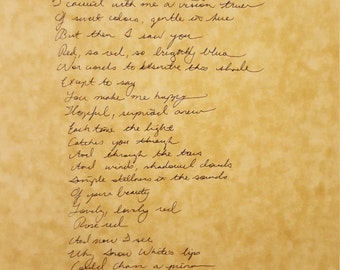 I carried with me a vision true
Of sweet colors, gentle in hue
But then I saw you
Red, so red, so brightly blue
No words to describe this shade
Except to say
You make me happy
Hopeful, surprised anew
Each time the light
Catches you through
And through the trees
And winds, shadowed clouds
Simple stillness in the sounds
Of your beauty
Lovely, lovely red
Rose red
And now I see
Why Snow White's lips
Could charm a prince